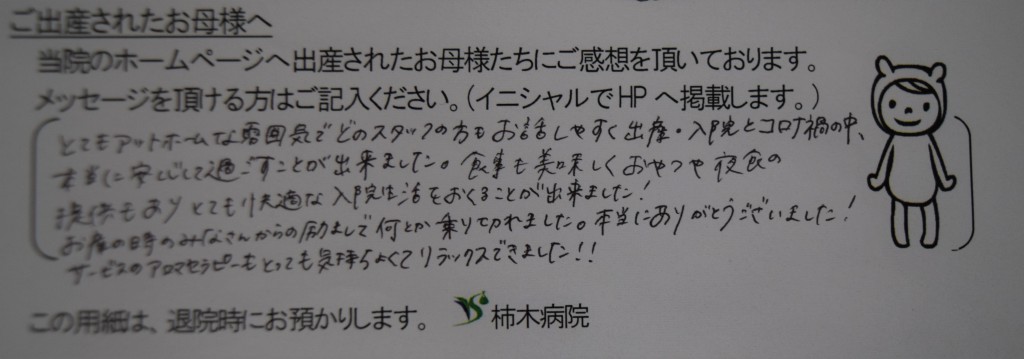 ご出産されたお母様へ
当院のホームページへ出産されたお母様たちにご感想を頂いております。
メッセージを頂ける方はご記入ください。（イニシャルでHPへ掲載します。）
とてもアットホームな雰囲気でどのスタッフの方もお話しやすく出産・入院とコロナ禍の中、
本当に安心して過ごすことが出来ました。食事も美味しくおやつや夜食の
提供もありとても快適な入院生活をおくることが出来ました！
お産の時のみなさんからの励ましで何とか乗り切れました。本当にありがとうございました！
サービスのアロマセラピーもとっても気持ちよくてリラックスできました！！
この用紙は、退院時にお預かりします。
柿木病院